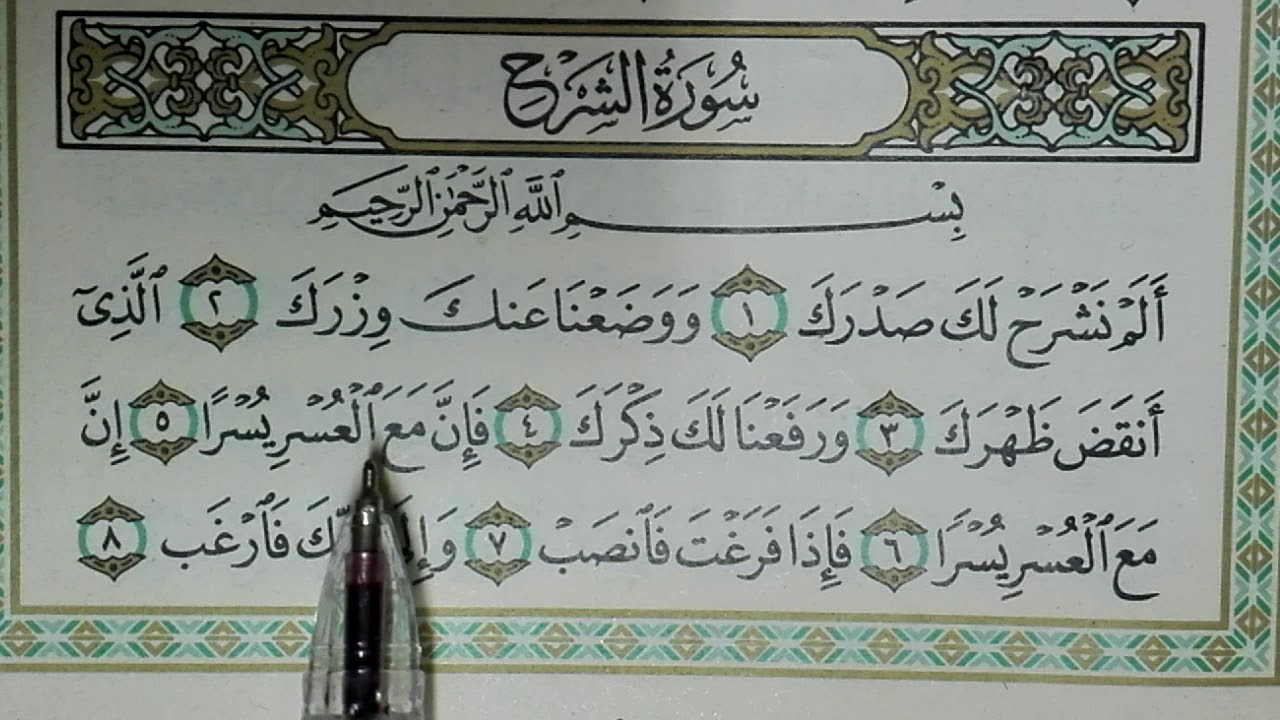 سُورَةُ الشَّرْحِ
بِسْمِ ٱللَّهِ ٱلرَّحْمَٰنِ ٱلرَّحِيمِ
أَلَمْ نَشْرَحْ لَكَ صَدْرَكَ ١ وَوَضَعْنَا عَنكَ وِزْرَكَ ٢ ٱلَّذِىٓ
أَنقَضَ ظَهْرَكَ ٣ وَرَفَعْنَا لَكَ ذِكْرَكَ ٤ فَإِنَّ مَعَ ٱلْعُسْرِ يُسْرًا ٥ إِنَّ
مَعَ ٱلْعُسْرِ يُسْرًا ٦ فَإِذَا فَرَغْتَ فَٱنصَبْ ٧ فَٱرْغَب ٨